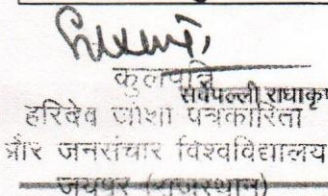 कुलपति
सर्वपल्ली राधाकृष
हरिदेव जोशी पत्रकारिता
और जनसंचार विश्वविद्यालय
जयपुर (राजस्थान)